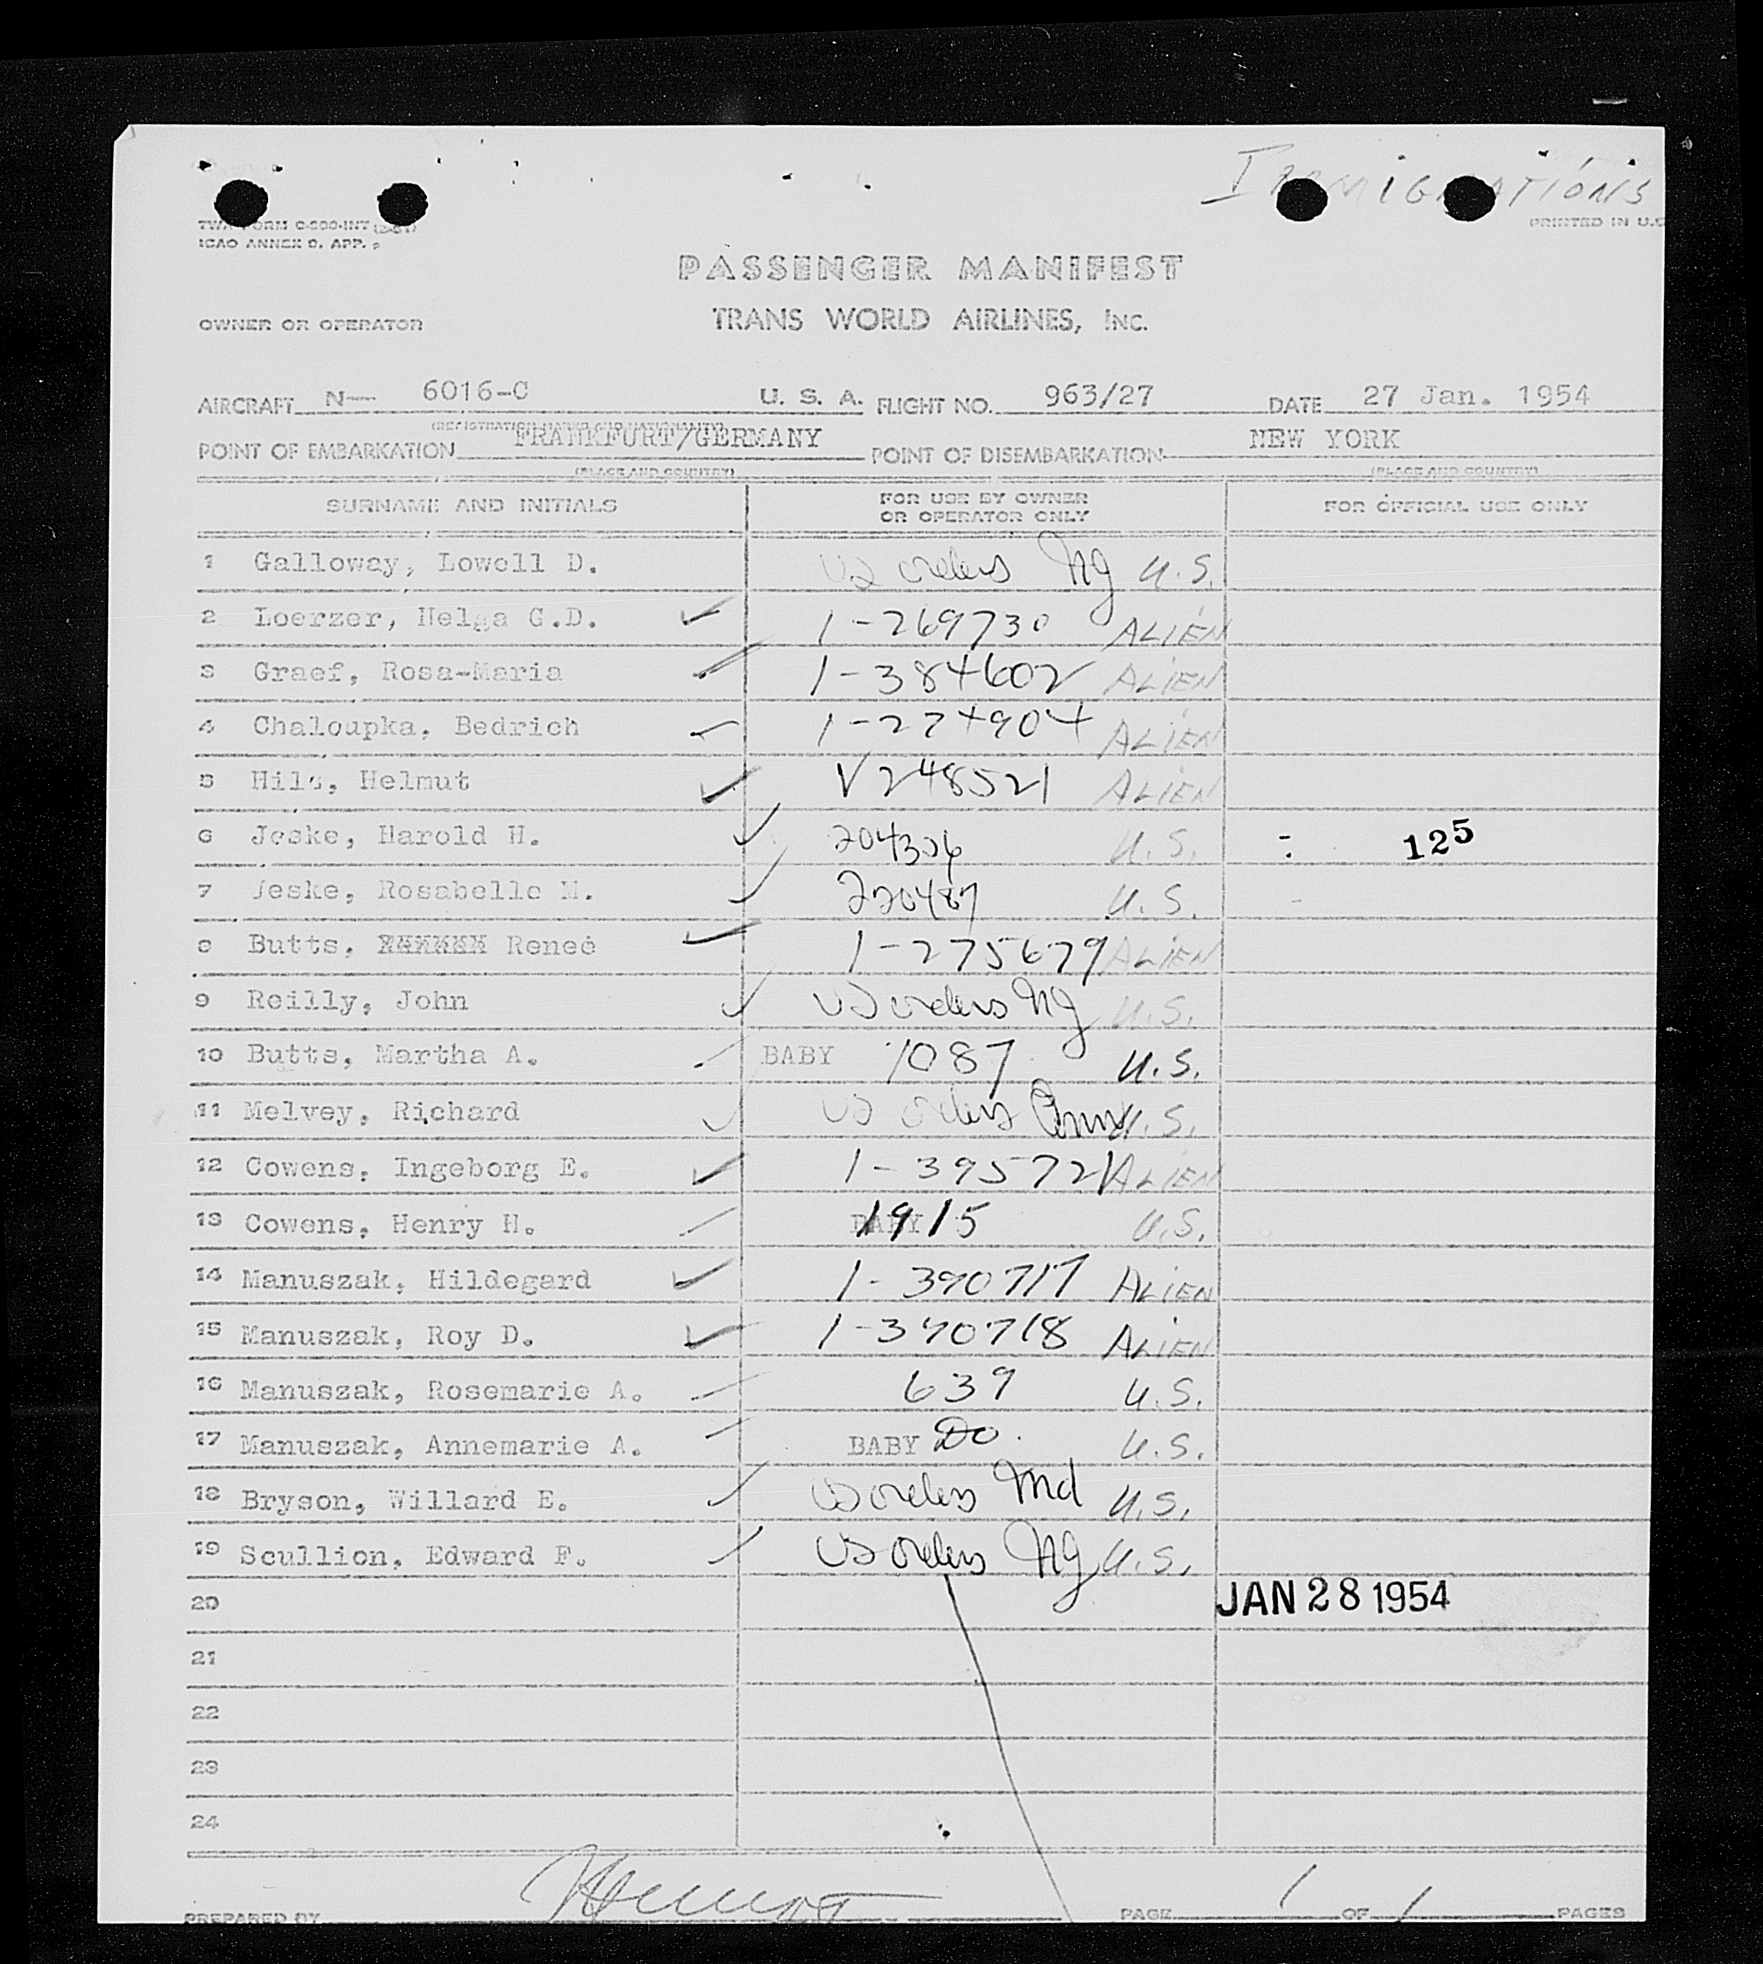 IMMIGRATIONS
TWA FORM C-500-INT (2-51)
ICAO ANNEX 9, APP. 2
PRINTED IN U.S
PASSENGER MANIFEST
OWNER OR OPERATOR TRANS WORLD AIRLINES, INC.
AIRCRAFT N— 6016-C U. S. A. FLIGHT NO. 963/27 DATE 27 Jan. 1954
(REGISTRATION MARKS AND NATIONALITY)
POINT OF EMBARKATION FRANKFURT/GERMANY POINT OF DISEMBARKATION NEW YORK
(PLACE AND COUNTRY) (PLACE AND COUNTRY)
SURNAME AND INITIALS FOR USE BY OWNER OR OPERATOR ONLY FOR OFFICIAL USE ONLY
1 Galloway, Lowell D. US orders Ng U.S.
2 Loerzer, Helga G.D. 1-269730 ALIEN
3 Graef, Rosa-Maria 1-384602 ALIEN
4 Chaloupka, Bedrich 1-274904 ALIEN
5 Hils, Helmut V248521 ALIEN
6 Jeske, Harold H. 204306 U.S. 125
7 Jeske, Rosabelle M. 220487 U.S.
8 Butts, Renee 1-275679 ALIEN
9 Reilly, John US orders Ng U.S.
10 Butts, Martha A. BABY 1087 U.S.
11 Melvey, Richard US orders U.S.
12 Cowens, Ingeborg E. 1-395721 ALIEN
13 Cowens, Henry H. BABY 1915 U.S.
14 Manuszak, Hildegard 1-390717 ALIEN
15 Manuszak, Roy D. 1-390718 ALIEN
16 Manuszak, Rosemarie A. 639 U.S.
17 Manuszak, Annemarie A. BABY DO. U.S.
18 Bryson, Willard E. US orders Md U.S.
19 Scullion, Edward F. US orders Ng U.S.
20 JAN 28 1954
21
22
23
24
PREPARED BY PAGE 1 OF 1 PAGES